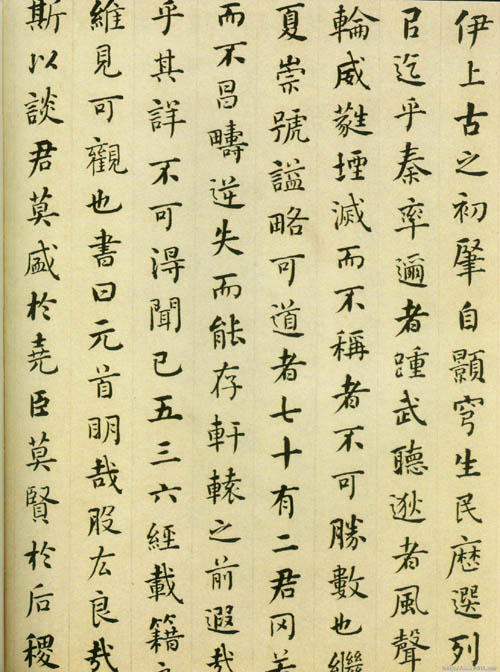 伊上古之初肇自顥穹生民歷選列
㠯迄乎秦率邇者踵武聽逖者風聲
輪威蕤堙滅而不稱者不可勝數也繼
夏崇號謚略可道者七十有二君罔
而不昌疇逆失而能存軒轅之前遐哉
乎其詳不可得聞已五三六經載籍
維見可觀也書曰元首明哉股厷良哉
斯以談君莫盛於堯臣莫賢於后稷